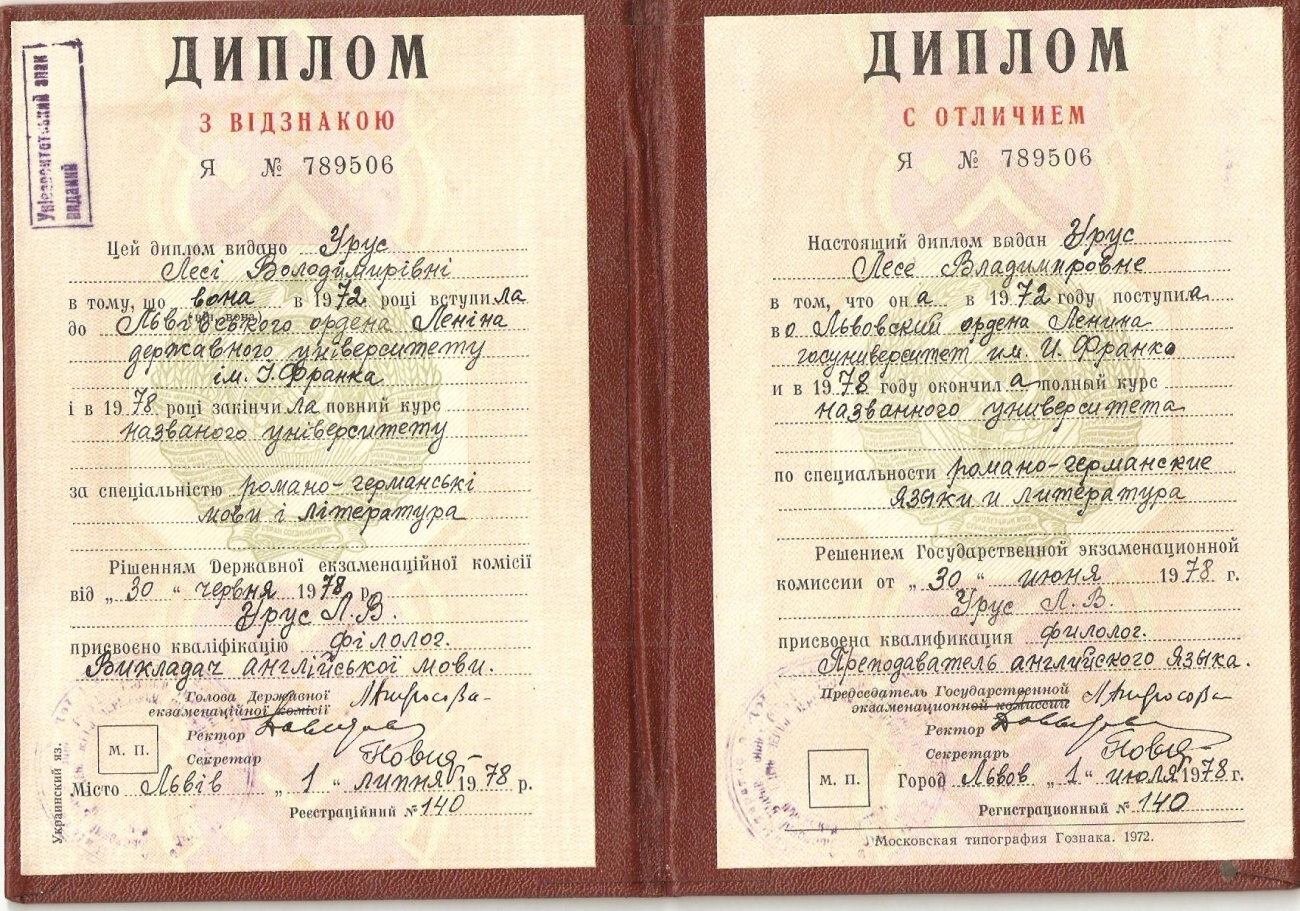 Університетський знак
виданий
ДИПЛОМ
З ВІДЗНАКОЮ
Я № 789506
Цей диплом видано Урус
Лесі Володимирівні
в тому, що вона в 1972 році вступила
(він, вона)
до Львівського ордена Леніна
державного університету
ім. І. Франка
і в 1978 році закінчила повний курс
названого університету
за спеціальністю романо-германські
мови і література
Рішенням Державної екзаменаційної комісії
від „30“ червня 1978 р.
Урус Л. В.
присвоєно кваліфікацію філолог.
Викладач англійської мови.
Голова Державної
екзаменаційної комісії
Ректор
Секретар
М. П.
Місто Львів „1“ липня 1978 р.
Реєстраційний № 140
Украинский яз.
ДИПЛОМ
С ОТЛИЧИЕМ
Я № 789506
Настоящий диплом выдан Урус
Лесе Владимировне
в том, что она в 1972 году поступила
во Львовский ордена Ленина
госуниверситет им. И. Франко
и в 1978 году окончила полный курс
названного университета
по специальности романо-германские
языки и литература
Решением Государственной экзаменационной
комиссии от „30“ июня 1978 г.
Урус Л. В.
присвоена квалификация филолог.
Преподаватель английского языка.
Председатель Государственной
экзаменационной комиссии
Ректор
Секретарь
М. П.
Город Львов „1“ июля 1978 г.
Регистрационный № 140
Московская типография Гознака. 1972.